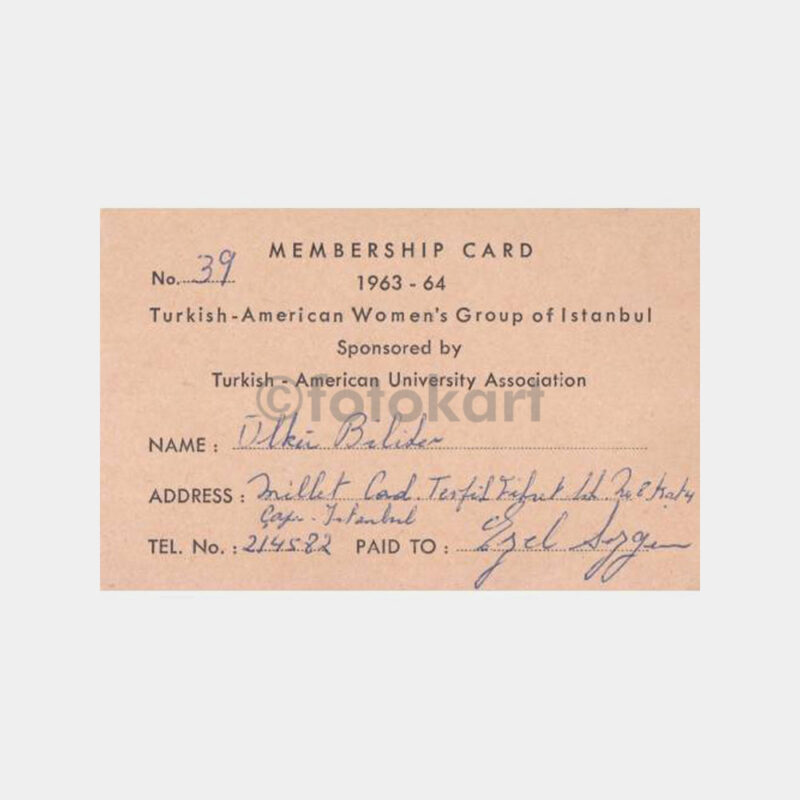 MEMBERSHIP CARD
No. 39
1963 - 64
Turkish-American Women's Group of Istanbul
Sponsored by
Turkish - American University Association
©fotokart
NAME : Ülkü
ADDRESS : Millet Cad.
Çapa - Istanbul
TEL. No. : 214582 PAID TO : Ezel Sezgin